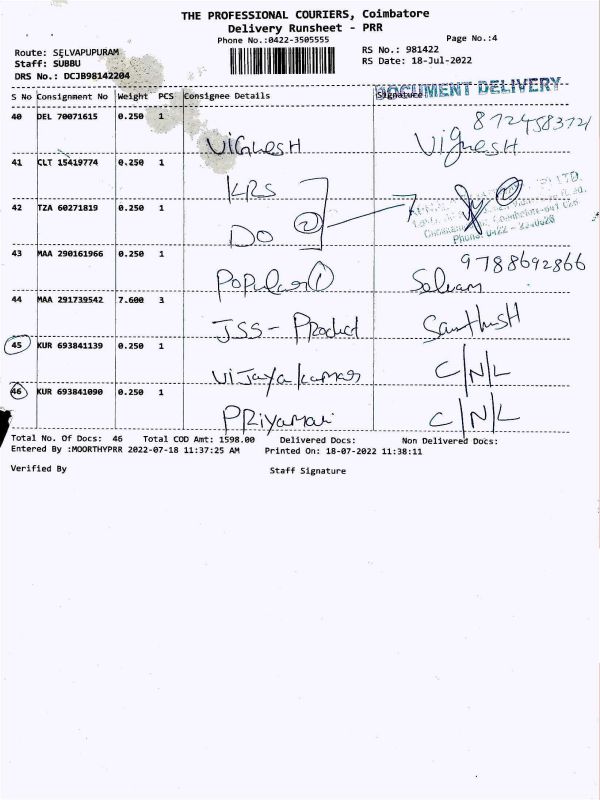 THE PROFESSIONAL COURIERS, Coimbatore
Delivery Runsheet - PRR
Phone No.:0422-3505555
Page No.:4
Route: SELVAPUPURAM
Staff: SUBBU
DRS No.: DCJB98142204
RS No.: 981422
RS Date: 18-Jul-2022
DOCUMENT DELIVERY
S No Consignment No Weight PCS Consignee Details Signature
40 DEL 70071615 0.250 1 Vignesh Vignesh
41 CLT 15419774 0.250 1 KRS
42 TZA 60271819 0.250 1 DO 2
Phone: 0422 -
43 MAA 290161966 0.250 1 Popular 1 9788692866
44 MAA 291739542 7.600 3 JSS - Product SanthusH
45 KUR 693841139 0.250 1 Vijayakumar C/N/L
46 KUR 693841090 0.250 1 PRiyamani C/N/L
Total No. Of Docs: 46 Total COD Amt: 1598.00 Delivered Docs: Non Delivered Docs:
Entered By :MOORTHYPRR 2022-07-18 11:37:25 AM Printed On: 18-07-2022 11:38:11
Verified By Staff Signature